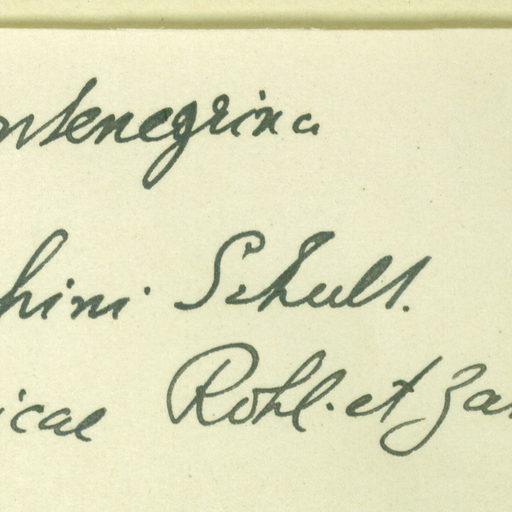 ontenegrina
hini Schult.
icae Rohl. et Zar